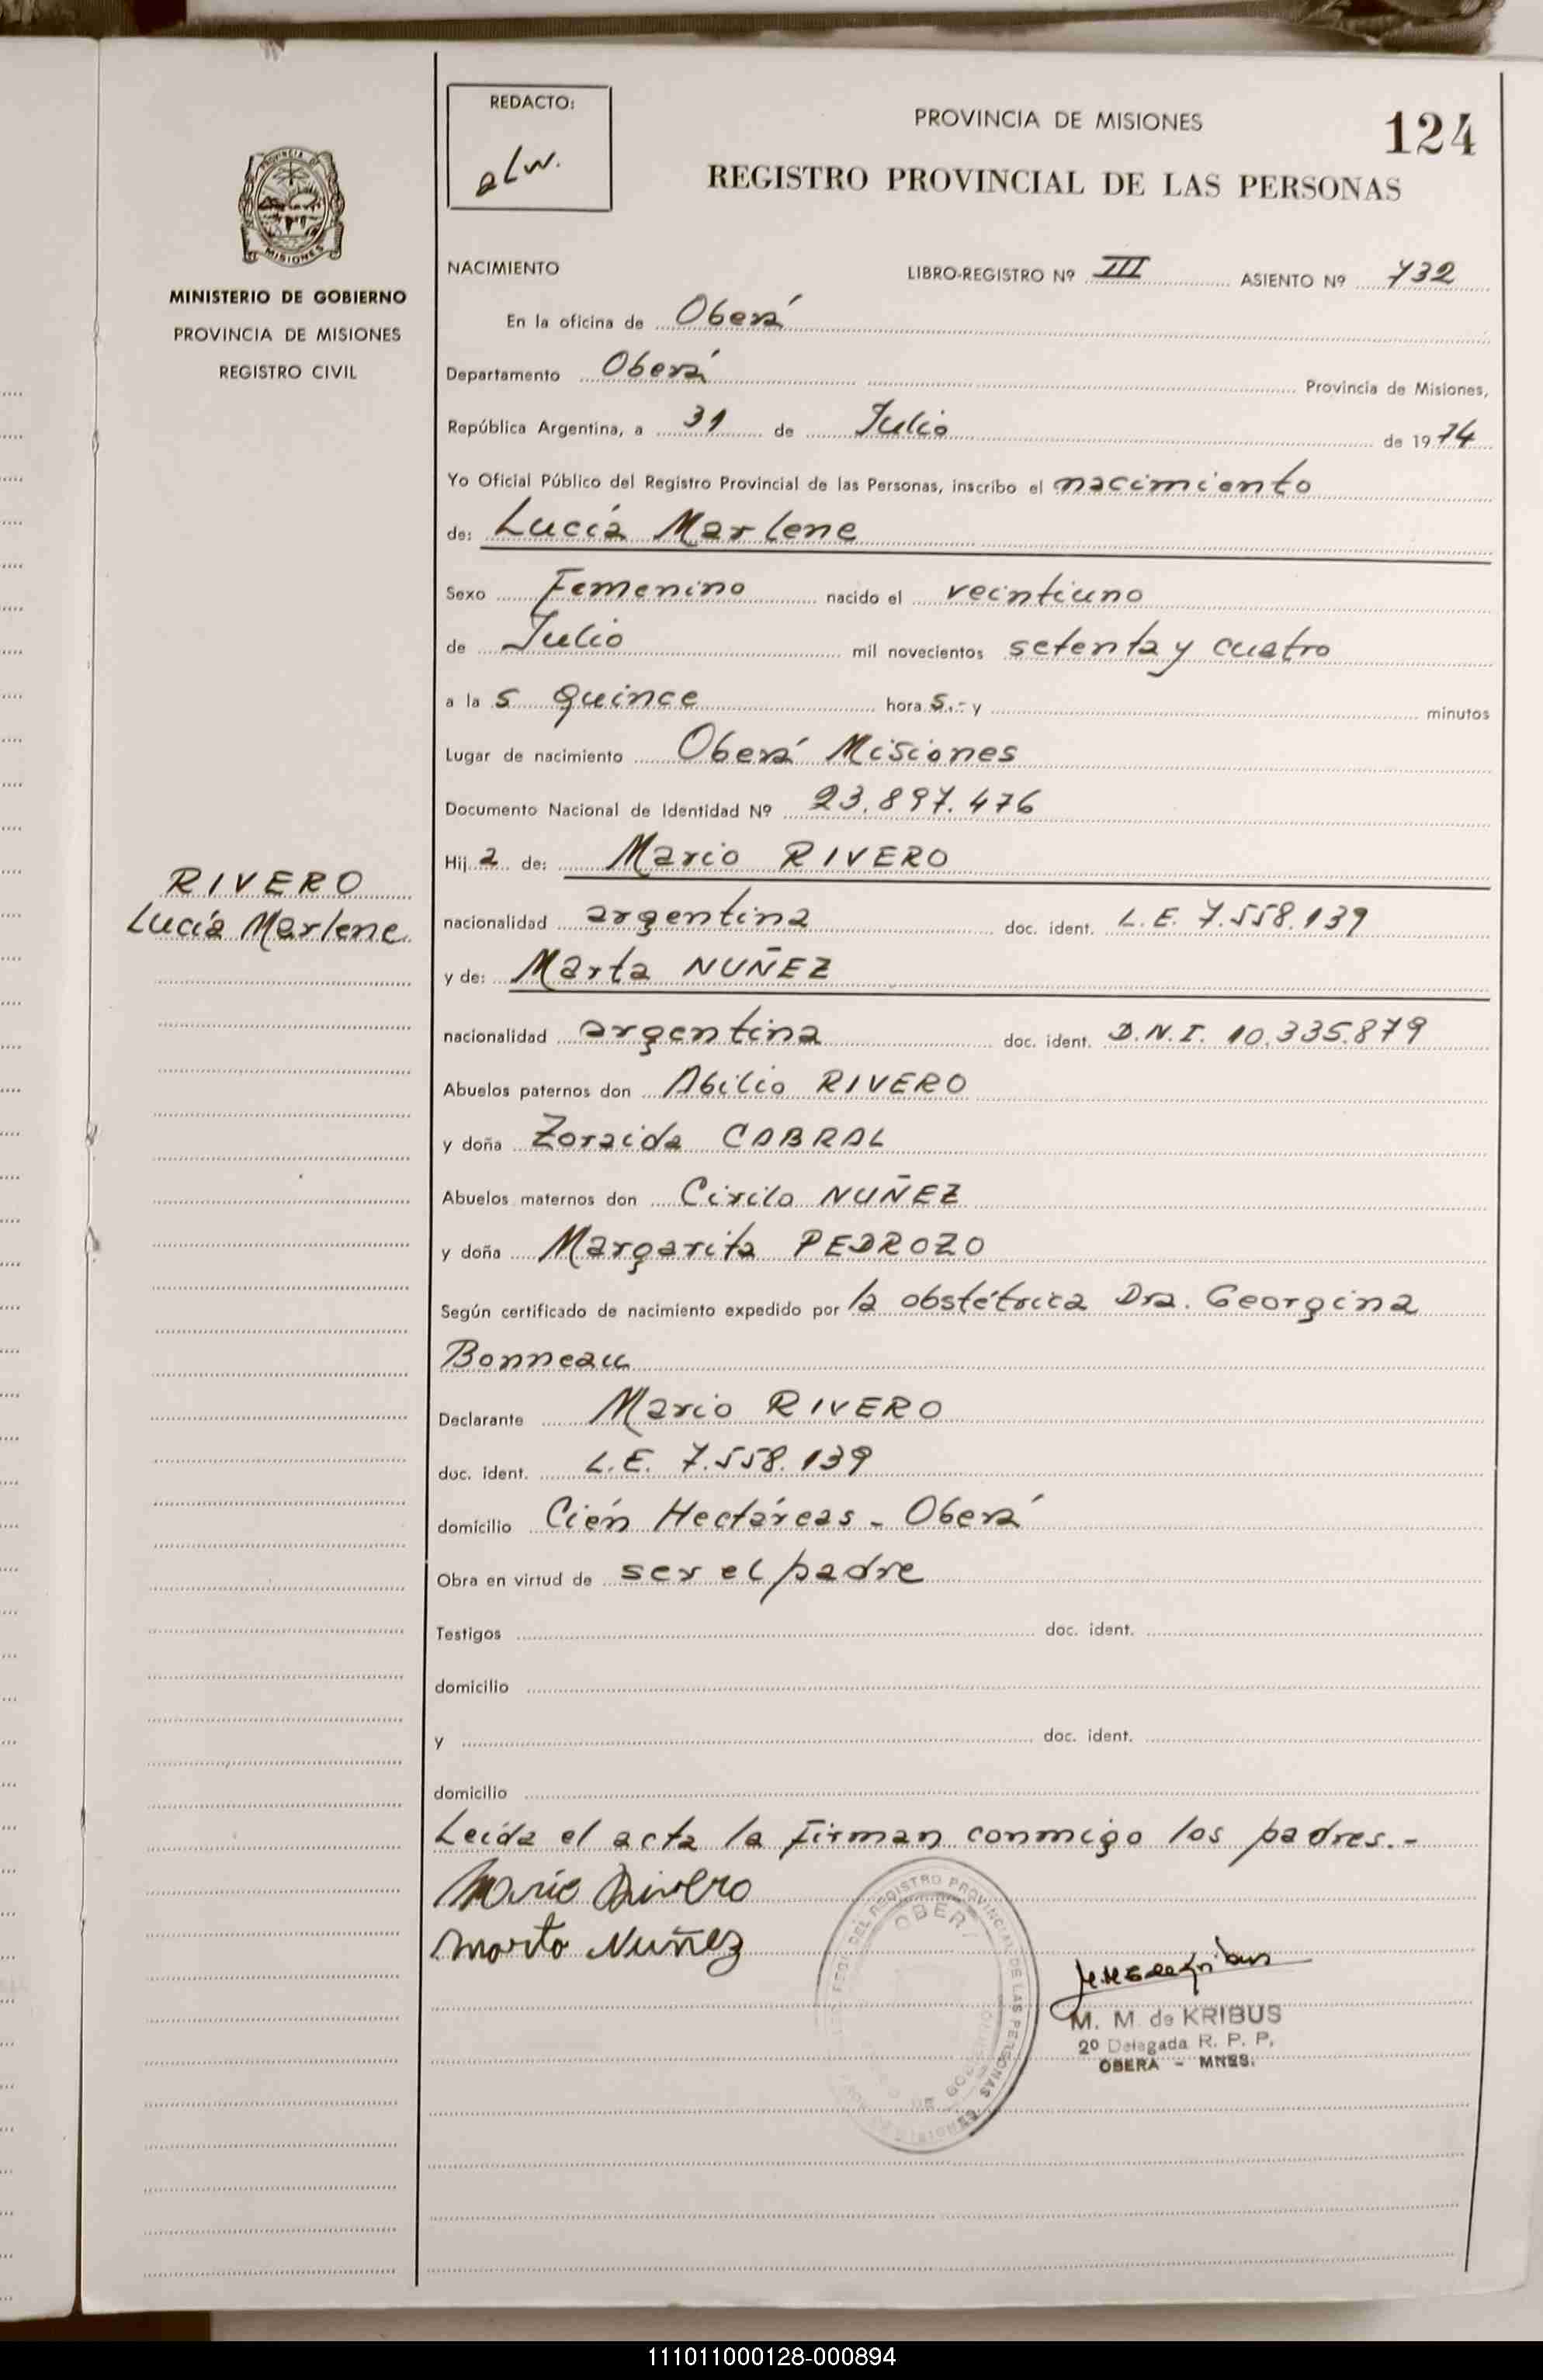 REDACTO:
PROVINCIA DE MISIONES
124
REGISTRO PROVINCIAL DE LAS PERSONAS
PROVINCIA DE
MISIONES
MINISTERIO DE GOBIERNO
PROVINCIA DE MISIONES
REGISTRO CIVIL
NACIMIENTO LIBRO-REGISTRO Nº III ASIENTO Nº 732
En la oficina de Oberá
Departamento Oberá Provincia de Misiones,
República Argentina, a 31 de Julio de 1974
Yo Oficial Público del Registro Provincial de las Personas, inscribo el nacimiento
de: Lucía Marlene
Sexo Femenino nacido el veintiuno
de Julio mil novecientos setenta y cuatro
a la s quince hora s.- y minutos
Lugar de nacimiento Oberá Misiones
Documento Nacional de Identidad Nº 23.897.476
Hij a de: Mario RIVERO
RIVERO
Lucía Marlene
nacionalidad argentina doc. ident. L.E. 7.558.139
y de: Marta NUÑEZ
nacionalidad argentina doc. ident. D.N.I. 10.335.879
Abuelos paternos don Abilio RIVERO
y doña Zoraida CABRAL
Abuelos maternos don Cirilo NUÑEZ
y doña Margarita PEDROZO
Según certificado de nacimiento expedido por la obstétrica Dra. Georgina
Bonneau
Declarante Mario RIVERO
doc. ident. L.E. 7.558.139
domicilio Cién Hectáreas - Oberá
Obra en virtud de ser el padre
Testigos doc. ident.
domicilio
y doc. ident.
domicilio
Leída el acta la firman conmigo los padres.-
Mario Rivero
Marta Nuñez
DEL REGISTRO PROVINCIAL DE LAS PERSONAS
OBERA
DE GOBIERNO
MISIONES
M. M. de KRIBUS
2º Delegada R. P. P.
OBERA - MNES.
111011000128-000894